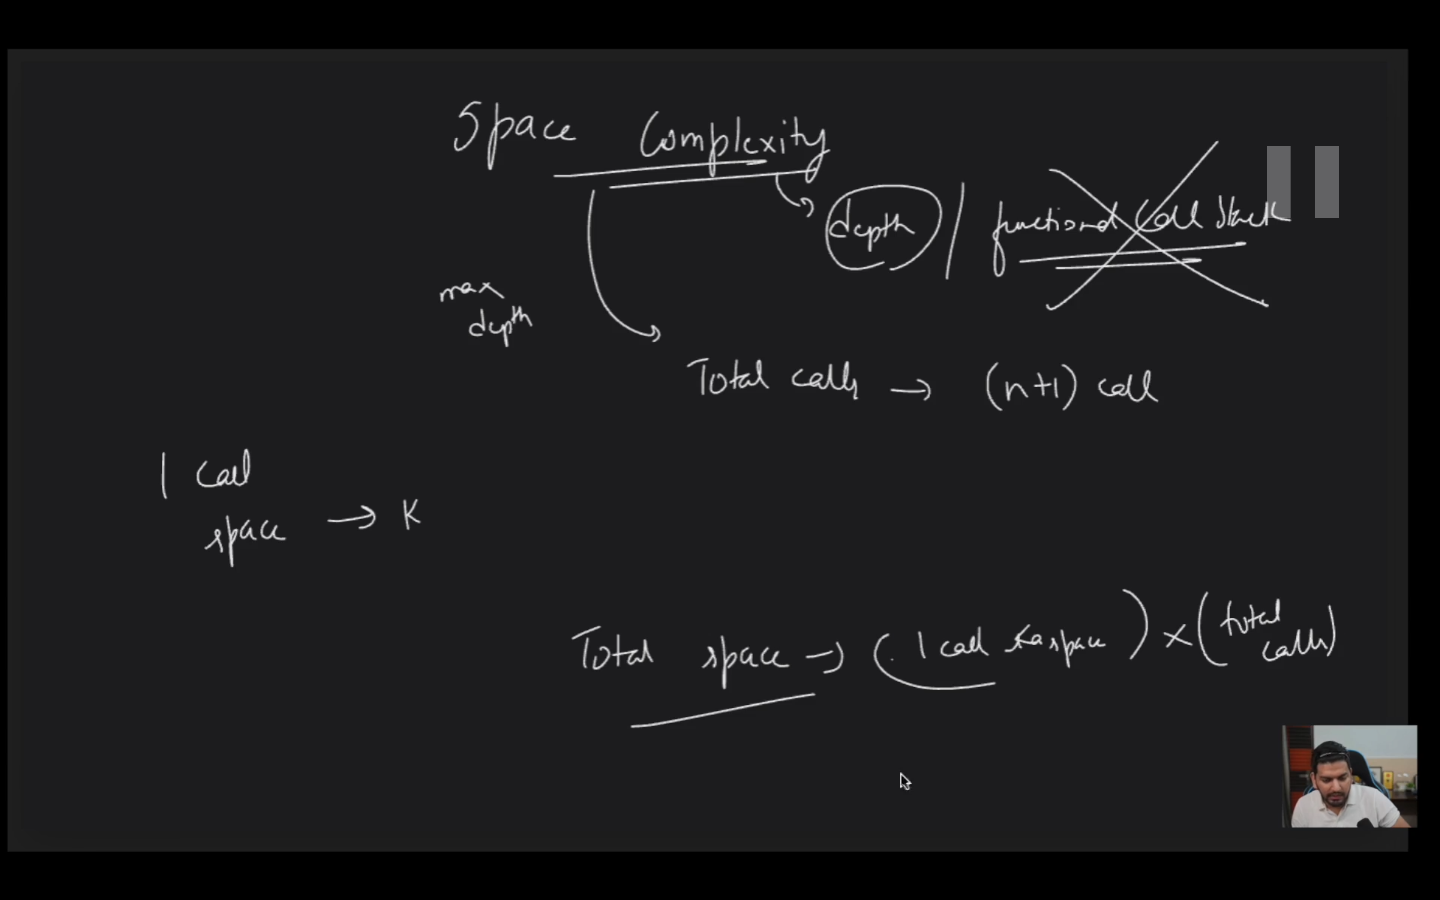 Space Complexity
depth / functional call stack
max
depth
Total calls → (n+1) call
1 call
space → K
Total space → (1 call ka space) × (total calls)